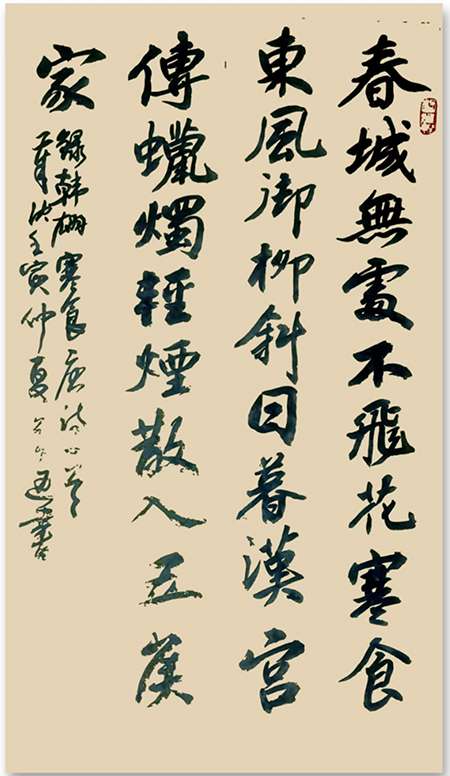 春城無處不飛花寒食
東風御柳斜日暮漢宮
傳蠟燭輕煙散入五侯
家
錄韓翃寒食唐詩一首
壬寅仲夏書